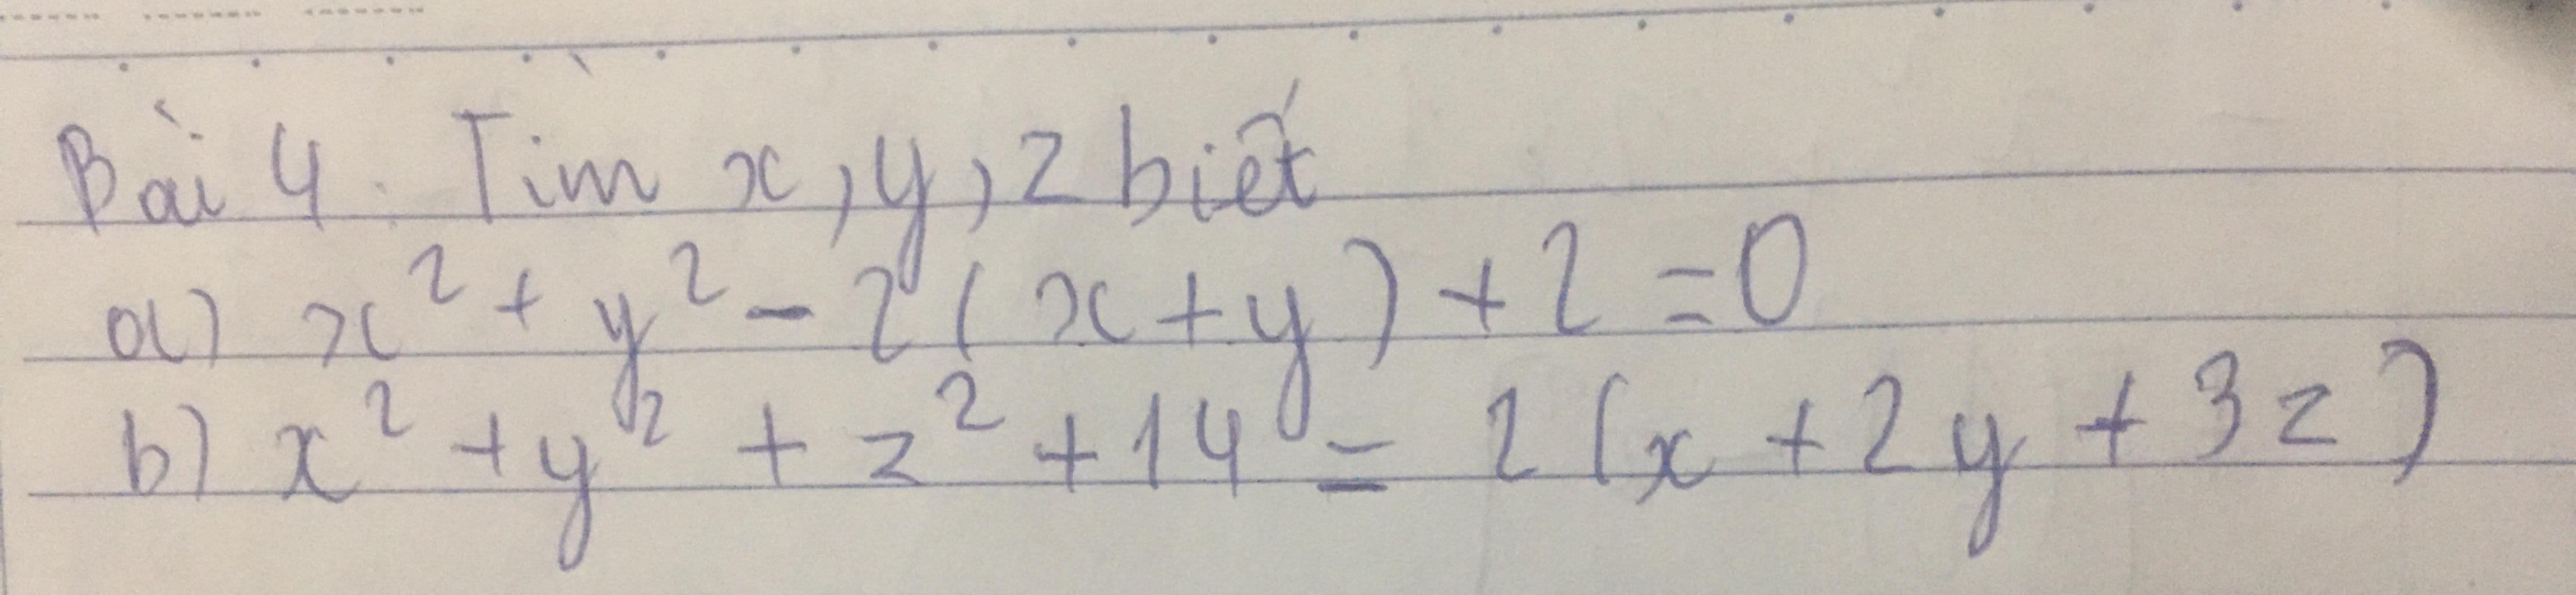 Bài 4. Tìm x, y, z biết
a) x² + y² - 2(x+y) + 2 = 0
b) x² + y² + z² + 14 = 2(x + 2y + 3z)